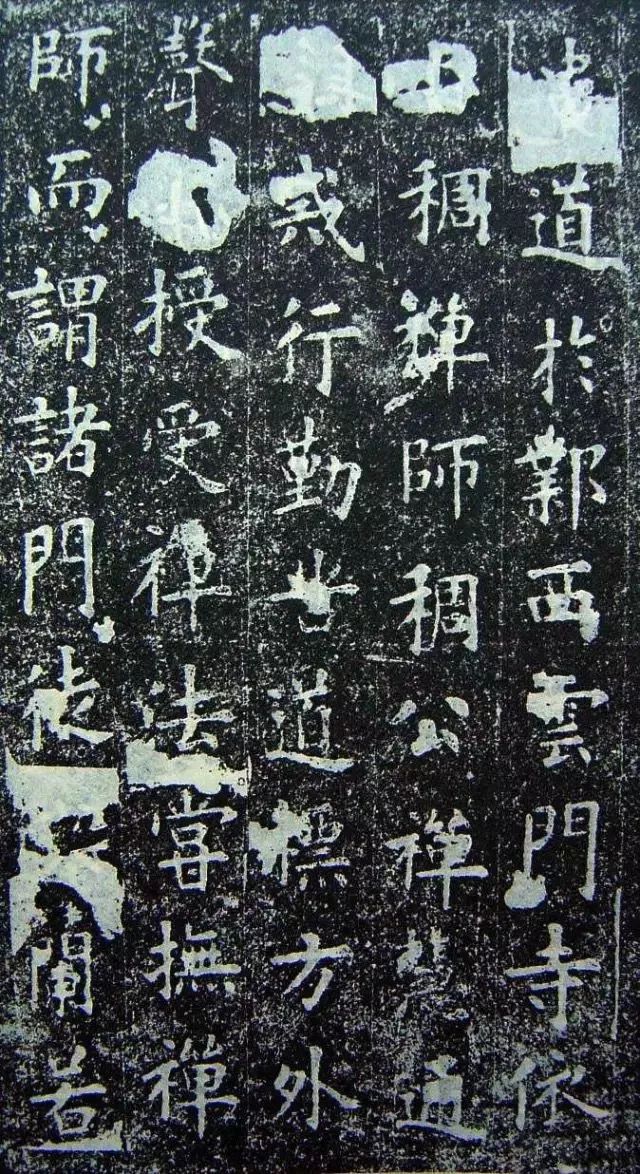 道於鄴西雲門寺依
稠禪師稠公禪慧通
戒行勤苦道標方外
聲授受禪法嘗撫禪
師而謂諸門徒若